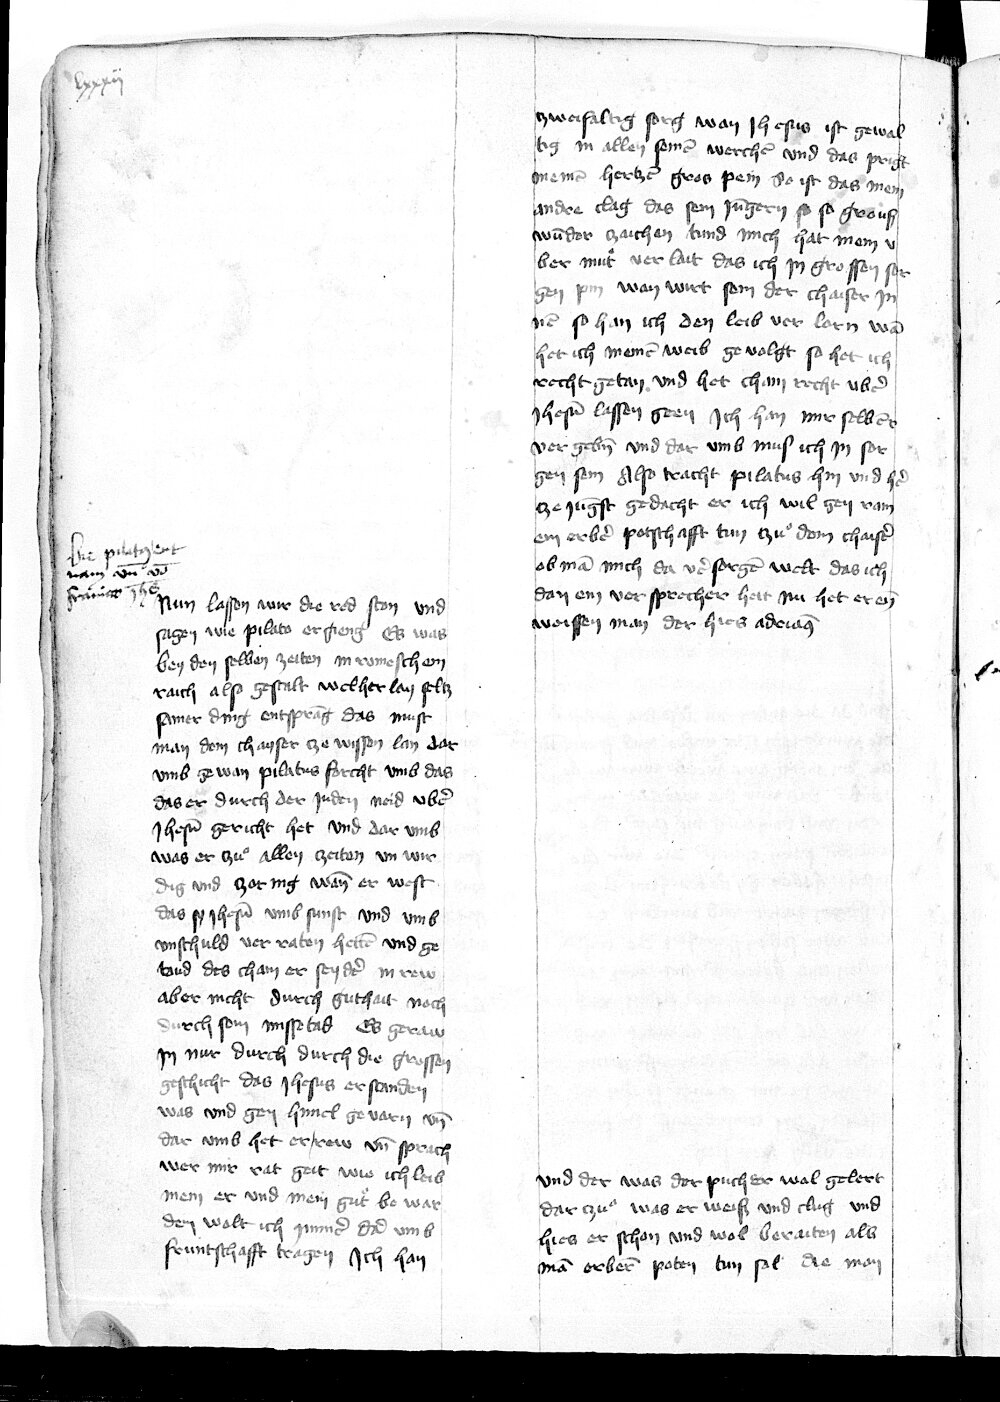 lxxxij
Die pilatz ent
nam vn̄ vō
Nun lassen wir die red sten vnd
sagen wie pilato ergieng Es was
bey den selben zeiten in romeschem
raich also gestalt welher lay seltz
samer ding entsprāg das must
man dem chayser tze wissen lan dar
vmb gewan pilatus forcht vmb das
das er durch der Juden neid vber̄
Jhesū gericht het vnd dar vmb
was er tzu allen zeiten vn wir
dig vnd tzornig wan̄ er west
das sy Jhesū vmb sunst vnd vmb
vnschuld ver raten hettē vnd ge
tand des cham er seyder̄ in rew
aber nicht durch guthait noch
durch sein missetad Es geraw
In nur durch durch die grossen
geschicht das Jhesus erstanden
was vnd gen himel gevarn vn̄
dar vmb het er rew vn̄ sprach
wer mir rat geit wie ich leib
mein er vnd mein gut be war
den wolt ich jmmer̄ dar̄ vmb
fruntschafft tragen Ich han
zweifaltig sorg wan Jhesus ist gewal
tig in allen seinē werchē vnd das prigt
meinē hertzē gros pein So ist das mein
andre clag das sein Jūgern so so grouss
wūder zaichen tund mich hat mein v
ber mut ver lait das ich In grossen sor
gen pin wan wirt sein der chaiser In
nē so han ich den leib ver lorn wā
het ich meinē weib gevolgt so het ich
recht getan vnd het cham recht vber̄
Jhesū lassen geen Ich han mir selber
ver gebn̄ vnd dar vmb mus ich In sor
gen sein Also tracht pilatus hin vnd her̄
tze Jūgst gedacht er ich wil gen ram
ein erber̄ potschafft tun tzu dem chaiser̄
ob mā mich da ver̄sorgē welt das ich
dan ein versprecher heit Nu het er en̄
weissen man der hies adrian9
vnd der was der pucher wol gelert
dar tzu was er weiss vnd clug vnd
hies er schon vnd wol beraiten als
mā erberē poten tun sol die man